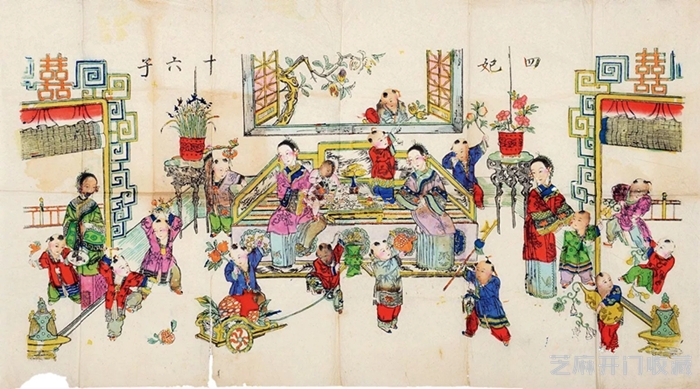 囍
四妃十六子
囍
芝麻开门收藏